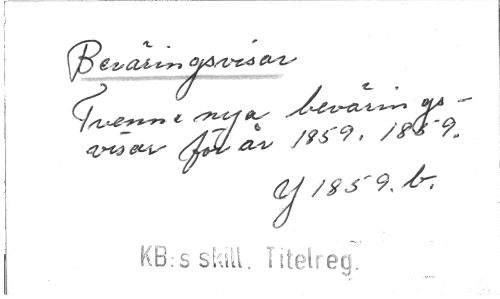 Beväringsvisor
Tvenne nya bevärings-
visor för år 1859. 1859.
Y 1859. b.
KB:s skill. Titelreg.